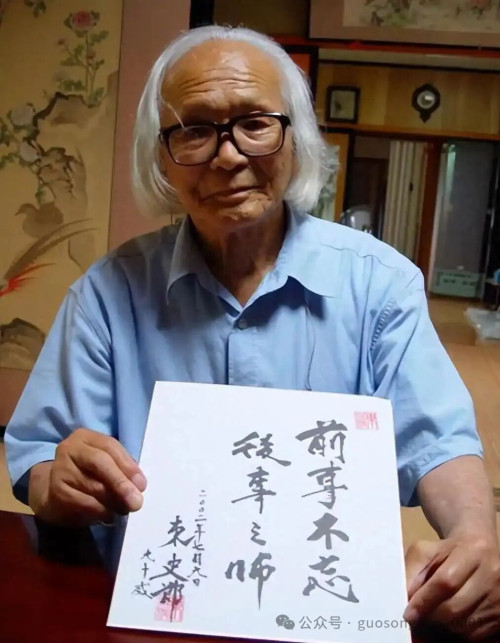 前事不忘
後事之師
二〇〇二年七月六日
東史郎
九十歳
公众号 ·